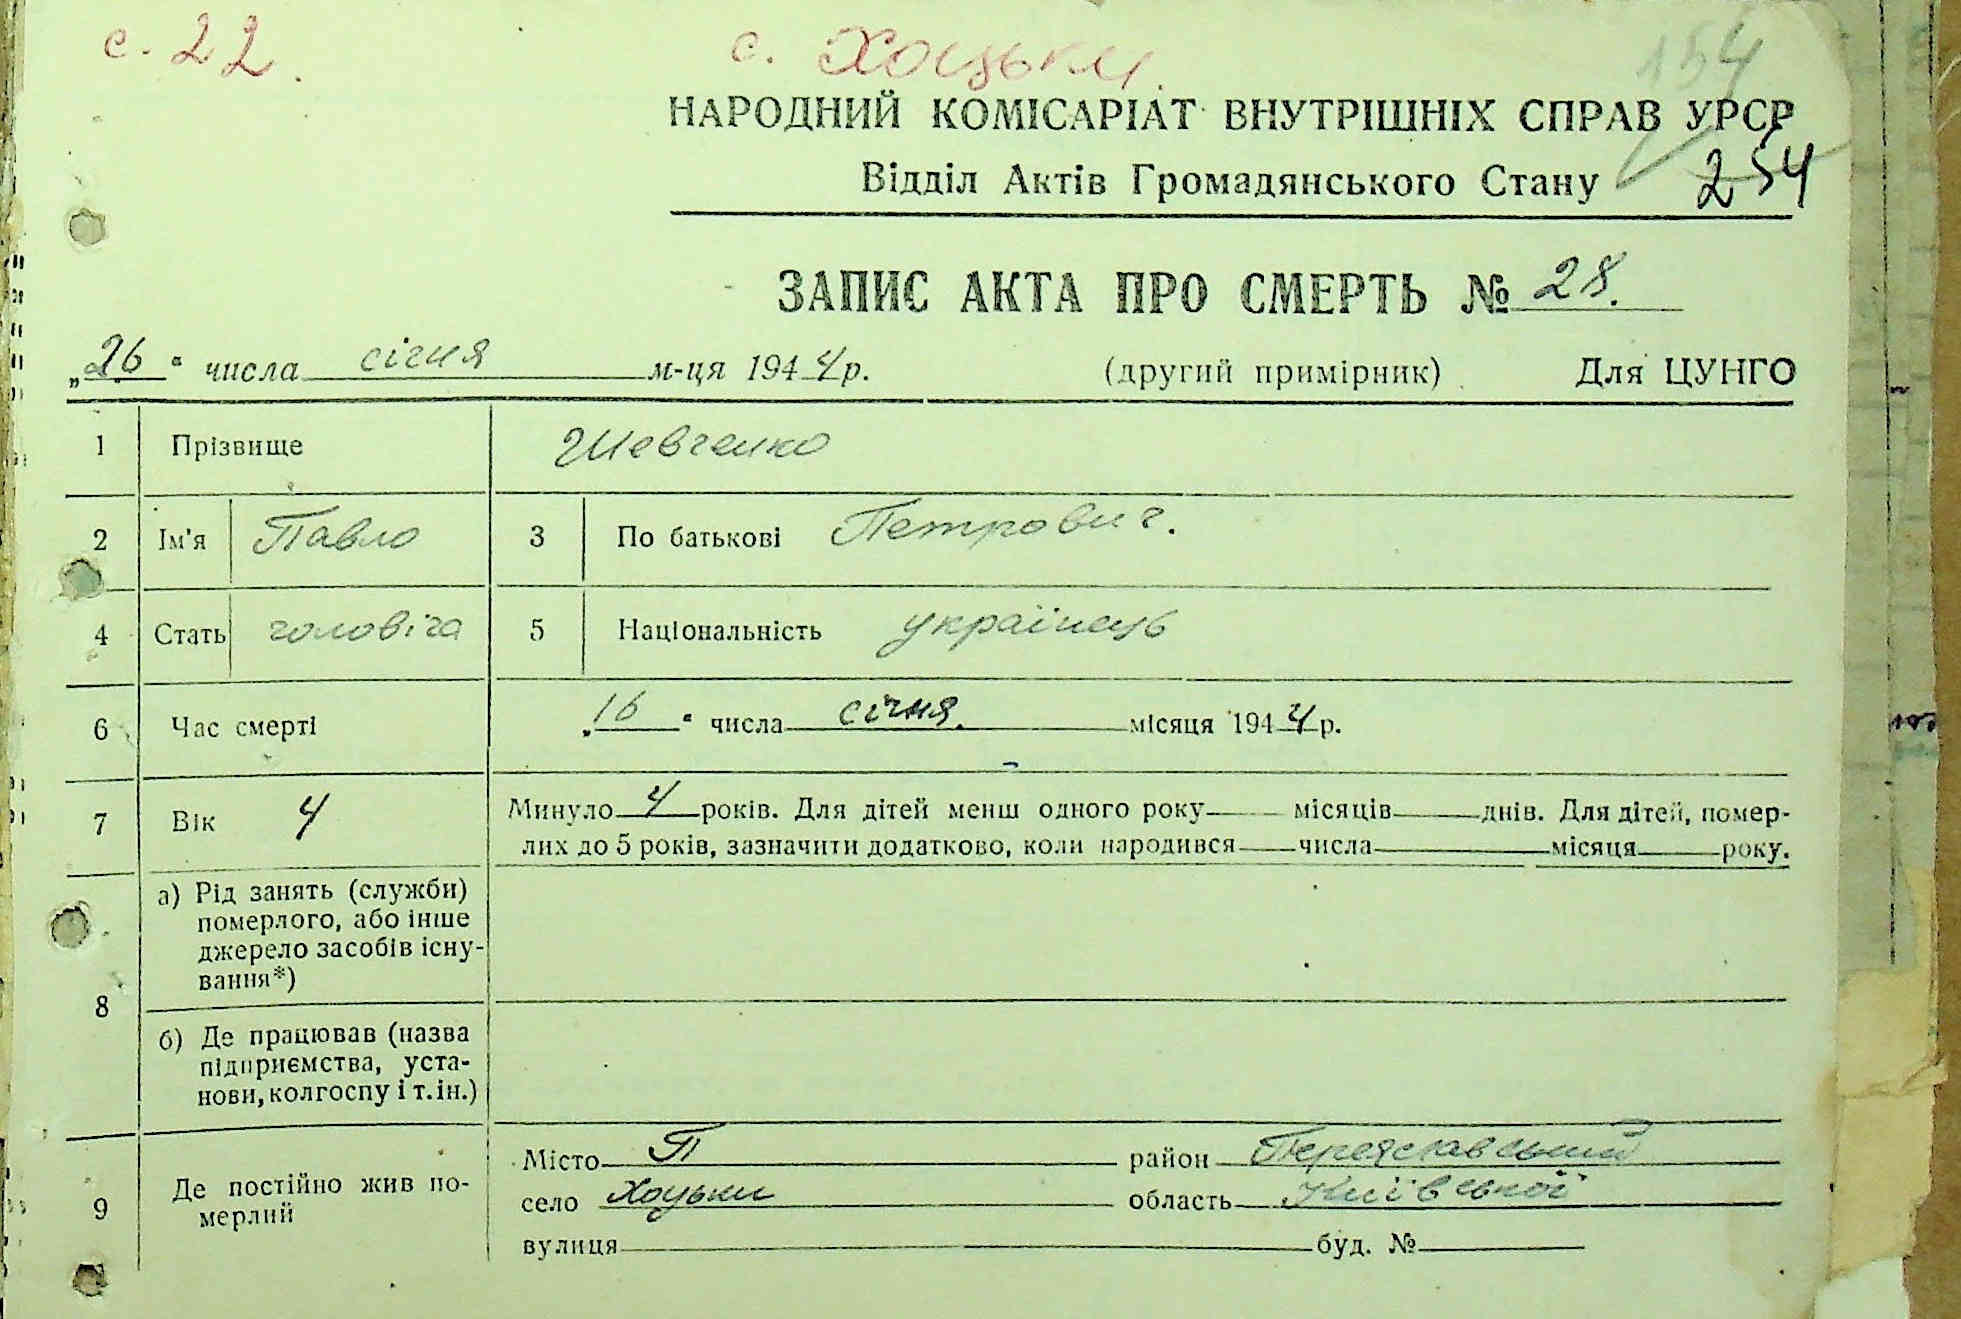 с. 22.
с. Хоцьки.
154
НАРОДНИЙ КОМІСАРІАТ ВНУТРІШНІХ СПРАВ УРСР
Відділ Актів Громадянського Стану
254
ЗАПИС АКТА ПРО СМЕРТЬ № 28.
„26“ числа січня м-ця 1944 р. (другий примірник) Для ЦУНГО
1 Прізвище Шевченко
2 Ім'я Павло 3 По батькові Петрович.
4 Стать чоловіча 5 Національність українець
6 Час смерті „16“ числа січня. місяця 1944 р.
7 Вік 4 Минуло 4 років. Для дітей менш одного року місяців днів. Для дітей, помер-
лих до 5 років, зазначити додатково, коли народився числа місяця року.
8 а) Рід занять (служби)
померлого, або інше
джерело засобів існу-
вання*)
б) Де працював (назва
підприємства, уста-
нови, колгоспу і т. ін.)
9 Де постійно жив по-
мерлий
Місто П район Переяславський
село Хоцьки область Київської
вулиця буд. №